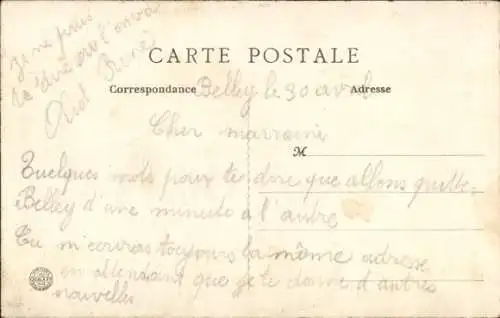 Je ne puis
te dire où l'on va
René
CARTE POSTALE
Correspondance
Adresse
Belley le 30 avril
Cher marraine
M
Quelques mots pour te dire que allons quitte
Belley d'une minute a l'autre
Tu m'ecriras toujours la même adresse
en attendant que je te donne d'autres
nouvelles